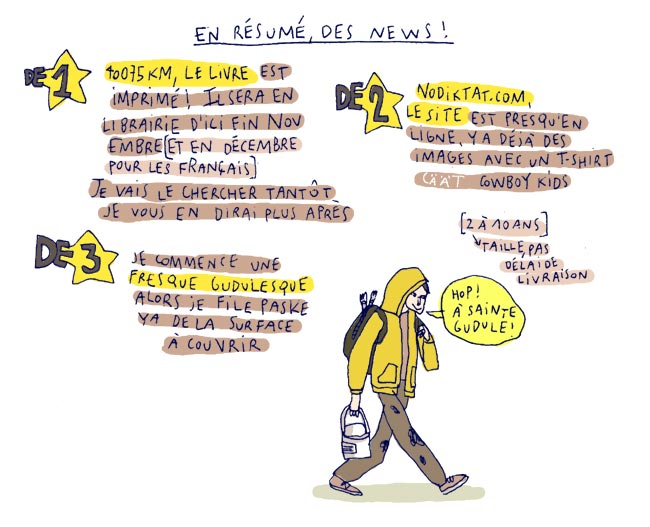 EN RÉSUMÉ, DES NEWS!
DE 1
40075KM, LE LIVRE EST
IMPRIMÉ! IL SERA EN
LIBRAIRIE D'ICI FIN NOV
EMBRE [ET EN DÉCEMBRE
POUR LES FRANÇAIS]
JE VAIS LE CHERCHER TANTÔT
JE VOUS EN DIRAI PLUS APRÈS
DE 2
NODIKTAT.COM,
LE SITE EST PRESQU'EN
LIGNE, YA DÉJÀ DES
IMAGES AVEC UN T-SHIRT
CÄÄT COWBOY KIDS
[2 À 10 ANS]
TAILLE, PAS
DÉLAI DE
LIVRAISON
DE 3
JE COMMENCE UNE
FRESQUE GUDULESQUE
ALORS JE FILE PASKE
YA DE LA SURFACE
À COUVRIR
HOP!
À SAINTE
GUDULE!